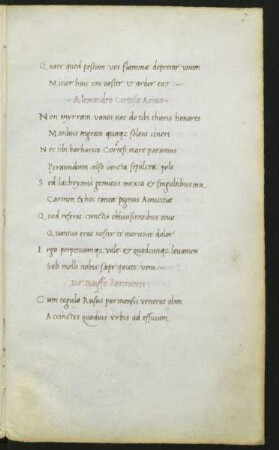 7
Quare quod possum uos flammae deprecor unum
Mitior huic uni uester ut ardor eat
Alexandro Cortesio Amico
Non myrram uanos nec do tibi charis honores
Manibus nigram quaque solent cineri
Nec tibi barbarico Cortesi more paramus
Pyramidum celso iuncta sepulcra polo
Sed lachrymis genitus maxta & singultibus ora
Carmen & hoc tantae pignus Amicitiae
Quod referat cunctis obliuiscentibus aeuo
Quantus erat noster te moriente dolor
Ergo perpetuumque uale & quodcunque leuamen
Sub molli nobis saepe quiete ueni
De Ruffo Parmensi
Cum tegula Rufus parmensis uenerat olim
Accinctus quoduis urbis ad officium